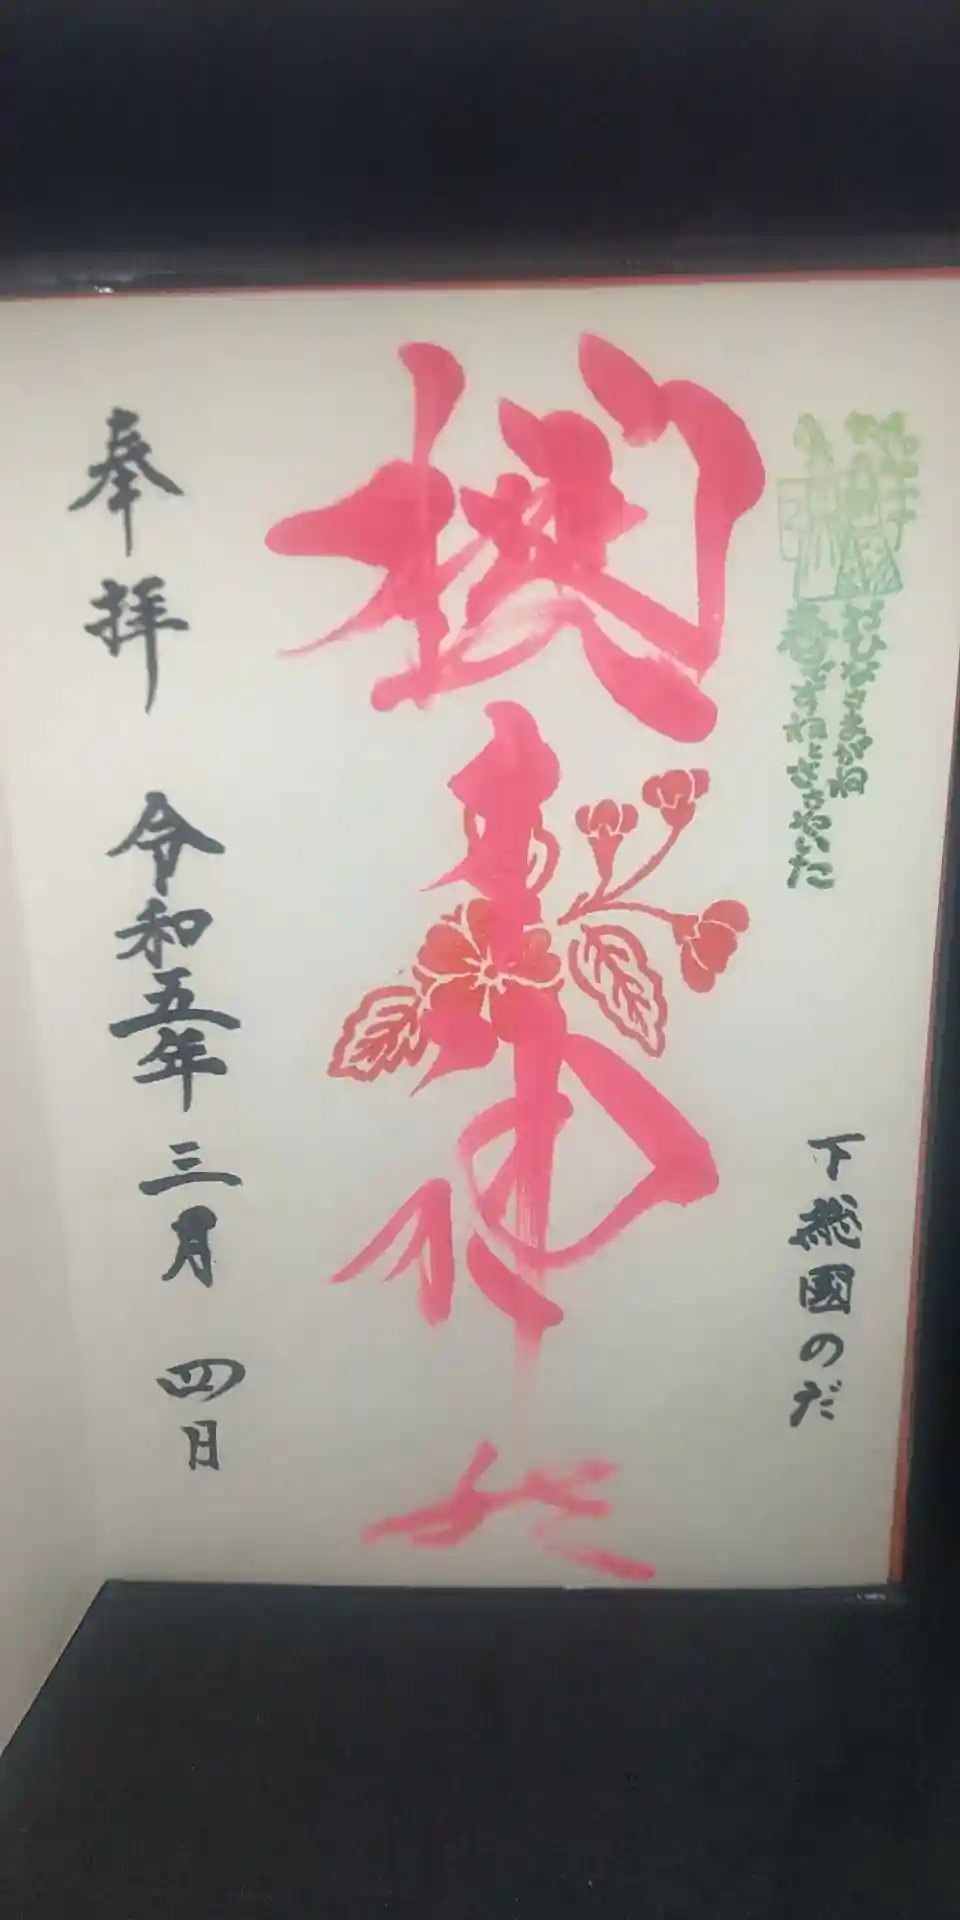 おひなさまがね
春ですねとささやいた
下総國のだ
櫻木神社
奉拝 令和五年三月四日